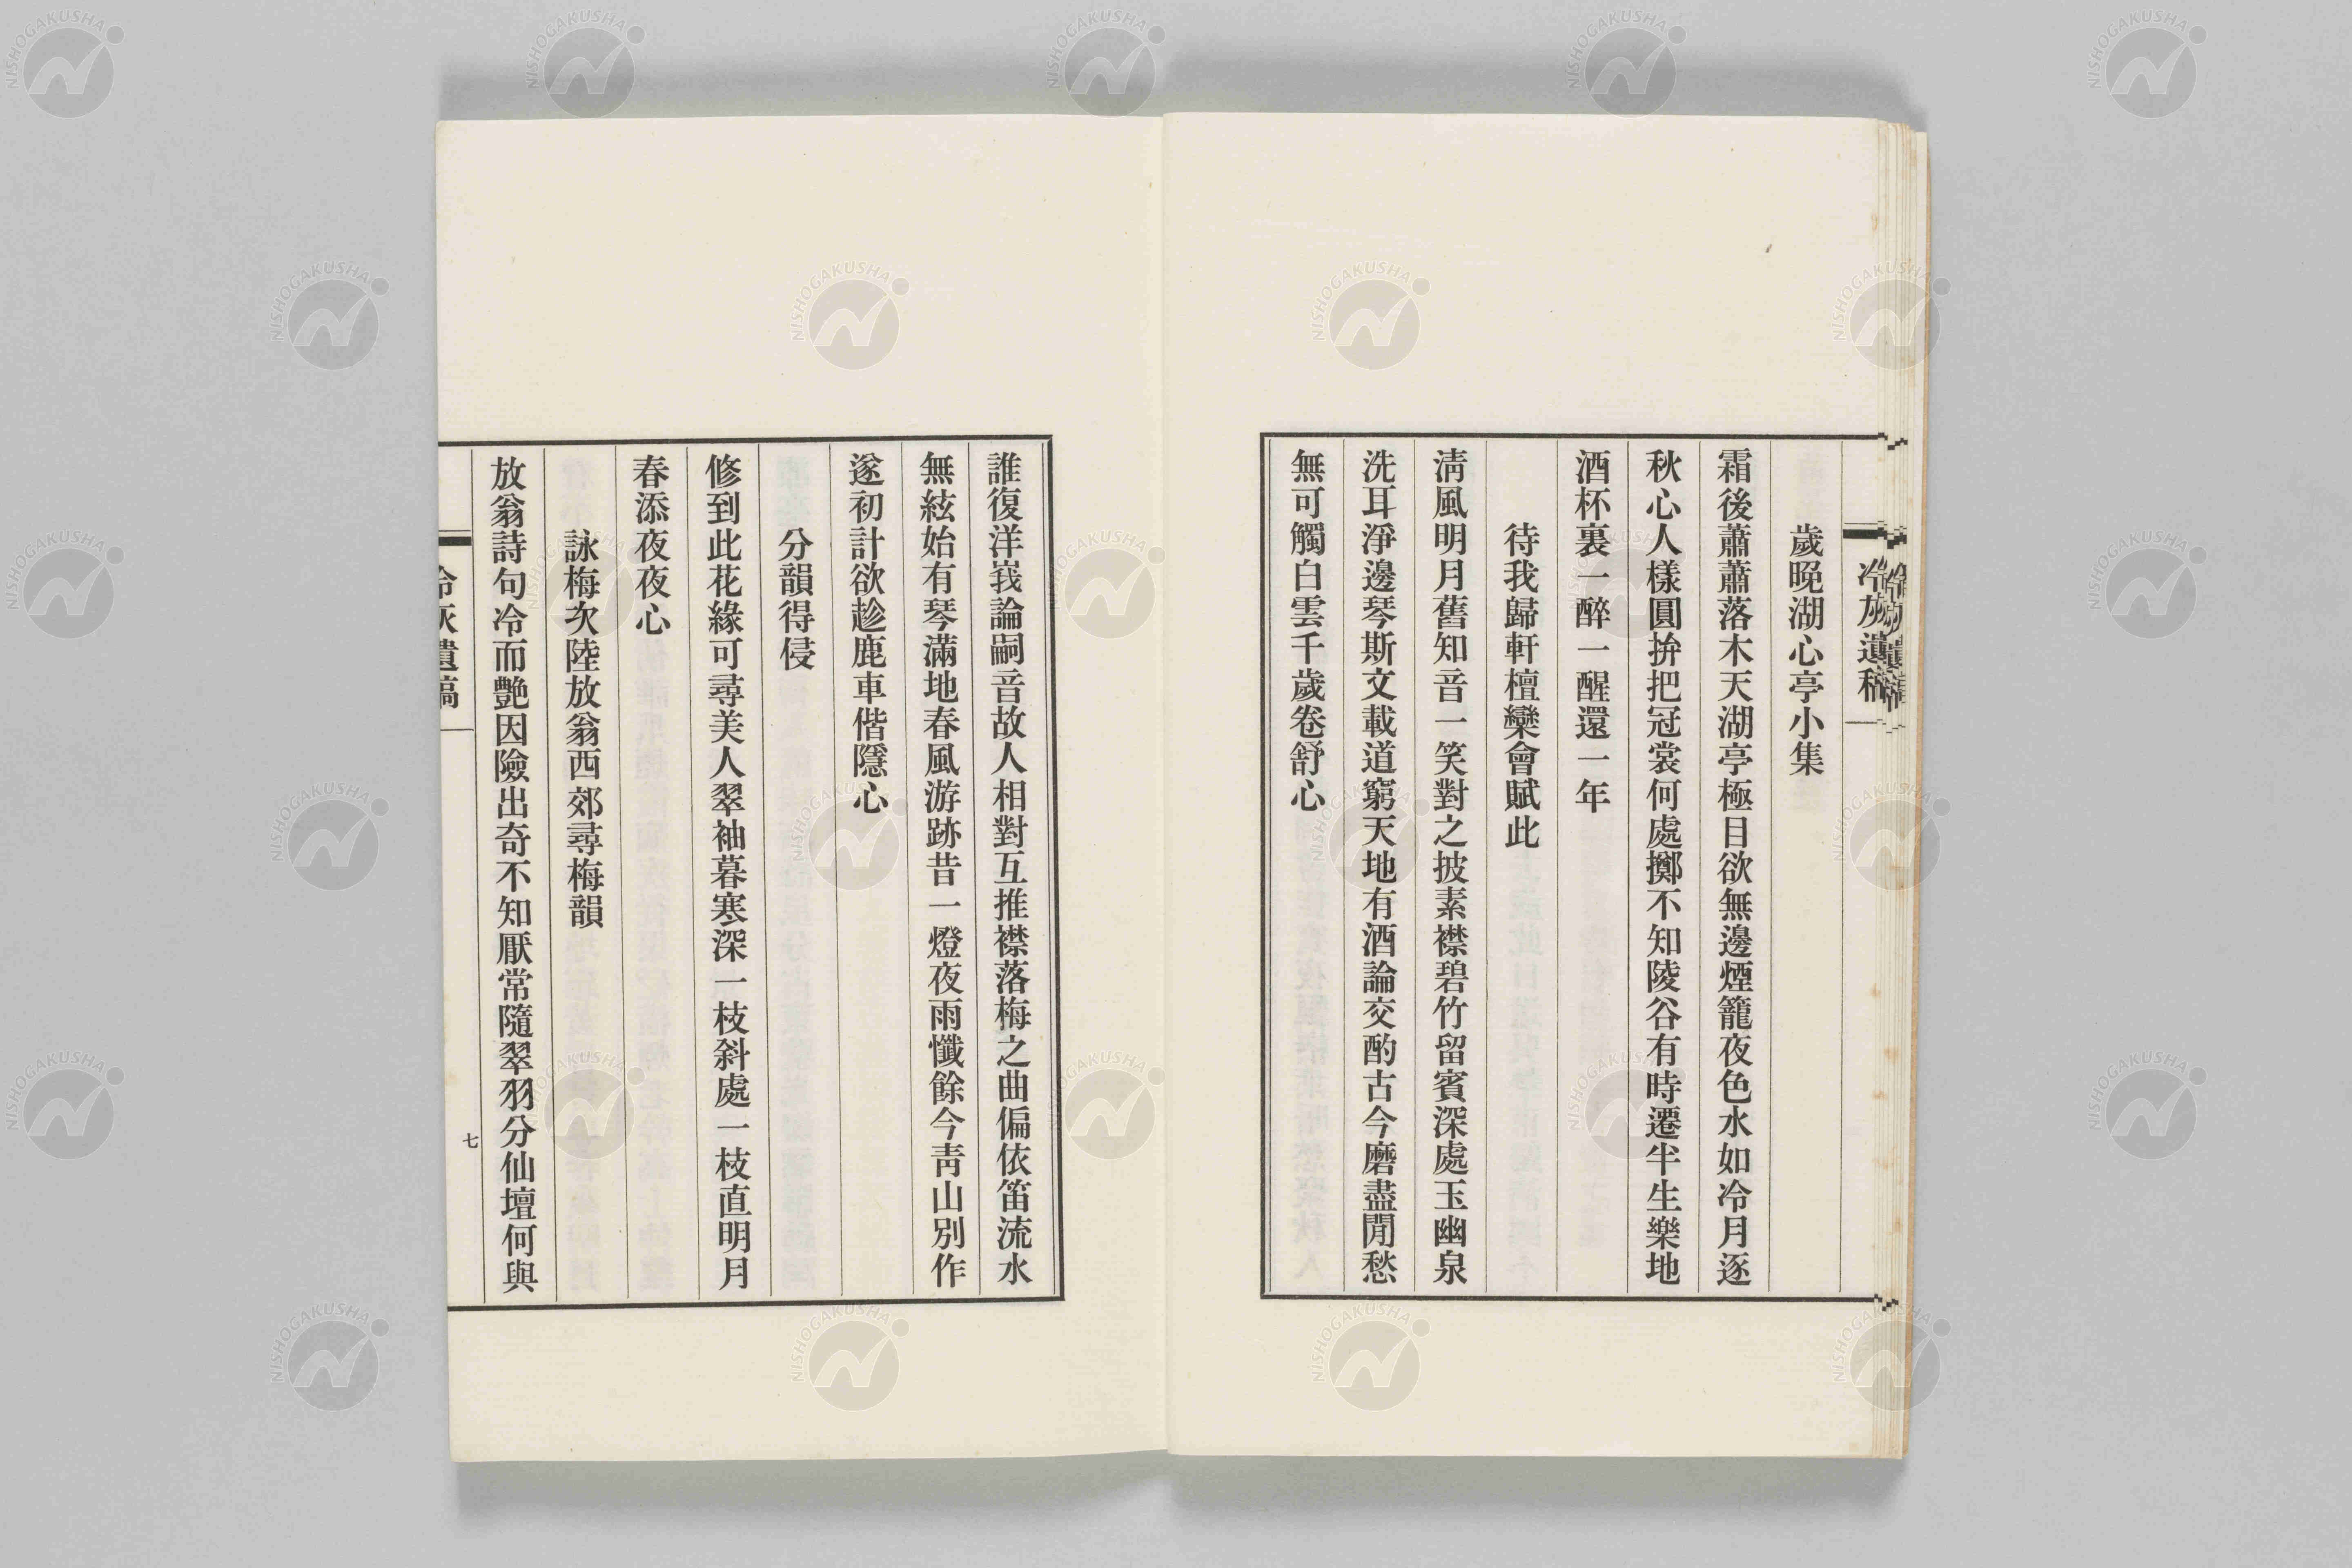 冷灰遺稿
歲晚湖心亭小集
霜後蕭蕭落木天湖亭極目欲無邊煙籠夜色水如冷月逐
秋心人樣圓拚把冠裳何處擲不知陵谷有時遷半生樂地
酒杯裏一醉一醒還一年
待我歸軒檀欒會賦此
淸風明月舊知音一笑對之披素襟碧竹留賓深處玉幽泉
洗耳淨邊琴斯文載道窮天地有酒論交酌古今磨盡閒愁
無可觸白雲千歲卷舒心
誰復洋峩論嗣音故人相對互推襟落梅之曲偏依笛流水
無絃始有琴滿地春風游跡昔一燈夜雨懺餘今靑山別作
遂初計欲趁鹿車偕隱心
分韻得侵
修到此花緣可尋美人翠袖暮寒深一枝斜處一枝直明月
春添夜夜心
詠梅次陸放翁西郊尋梅韻
放翁詩句冷而艷因險出奇不知厭常隨翠羽分仙壇何與
冷灰遺稿
七
NISHOGAKUSHA